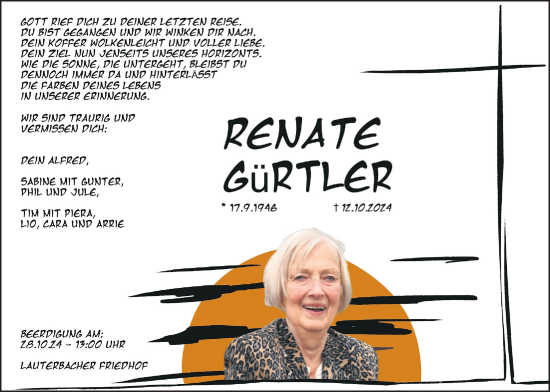 GOTT RIEF DICH ZU DEINER LETZTEN REISE.
DU BIST GEGANGEN UND WIR WINKEN DIR NACH.
DEIN KOFFER WOLKENLEICHT UND VOLLER LIEBE.
DEIN ZIEL NUN JENSEITS UNSERES HORIZONTS.
WIE DIE SONNE, DIE UNTERGEHT, BLEIBST DU
DENNOCH IMMER DA UND HINTERLÄSST
DIE FARBEN DEINES LEBENS
IN UNSERER ERINNERUNG.
WIR SIND TRAURIG UND
VERMISSEN DICH:
DEIN ALFRED,
SABINE MIT GUNTER,
PHIL UND JULE,
TIM MIT PIERA,
LIO, CARA UND ARRIE
RENATE
GüRTLER
* 17.9.1946 † 12.10.2024
BEERDIGUNG AM:
28.10.24 - 13:00 UHR
LAUTERBACHER FRIEDHOF